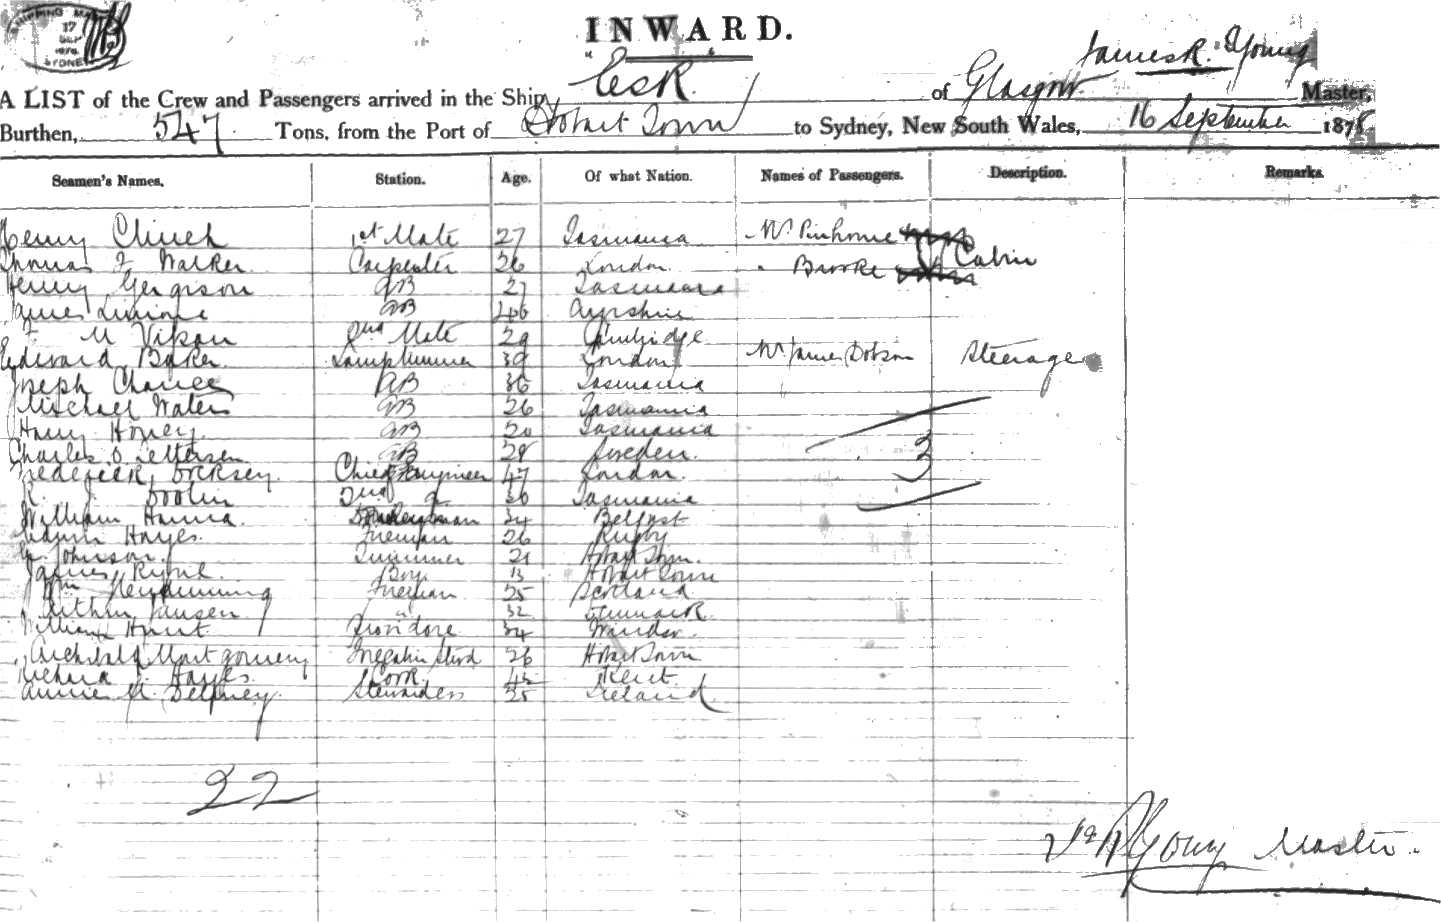 SHIPPING MA
17
SEP
1878
SYDNEY
INWARD.
A LIST of the Crew and Passengers arrived in the Ship, "Esk" of Glasgow James R. Young Master,
Burthen, 547 Tons, from the Port of Hobart Town to Sydney, New South Wales, 16 September 1878
Seamen's Names. Station. Age. Of what Nation. Names of Passengers. Description. Remarks.
Henry Clinch 1st Mate 27 Tasmania Mr Pinhorne
Thomas J Walker Carpenter 26 London " Brooke Cabin
Henry Gergison AB 27 Tasmania
James AB 46 Ayrshire
F M 2nd Mate 29 Cambridge
Edward Baker Lamptrimmer 39 London Mr James Dobson Steerage
Joseph Chancey AB 36 Tasmania
Michael Waters AB 26 Tasmania
Harry Honey AB 20 Tasmania
Charles O Pettersen AB 28 Sweden 3
Frederick Chief Engineer 47 London
R. J. Doolin 2nd " 30 Tasmania
William Hanna 34 Belfast
Hayes Fireman 26 Rugby
G. Johnson Trimmer 21 Hobart Town
James Boy 13 Hobart Town
Wm Fireman 25 Scotland
Arthur Jansen " 32 Denmark
William Hunt Providore 34 Windsor
Archibald Montgomery Forecabin Stwd 26 Hobart Town
Richard J. Hayes Cook 42 Kent
Annie M Delaney Stewardess 25 Ireland
22
Jas R Young Master